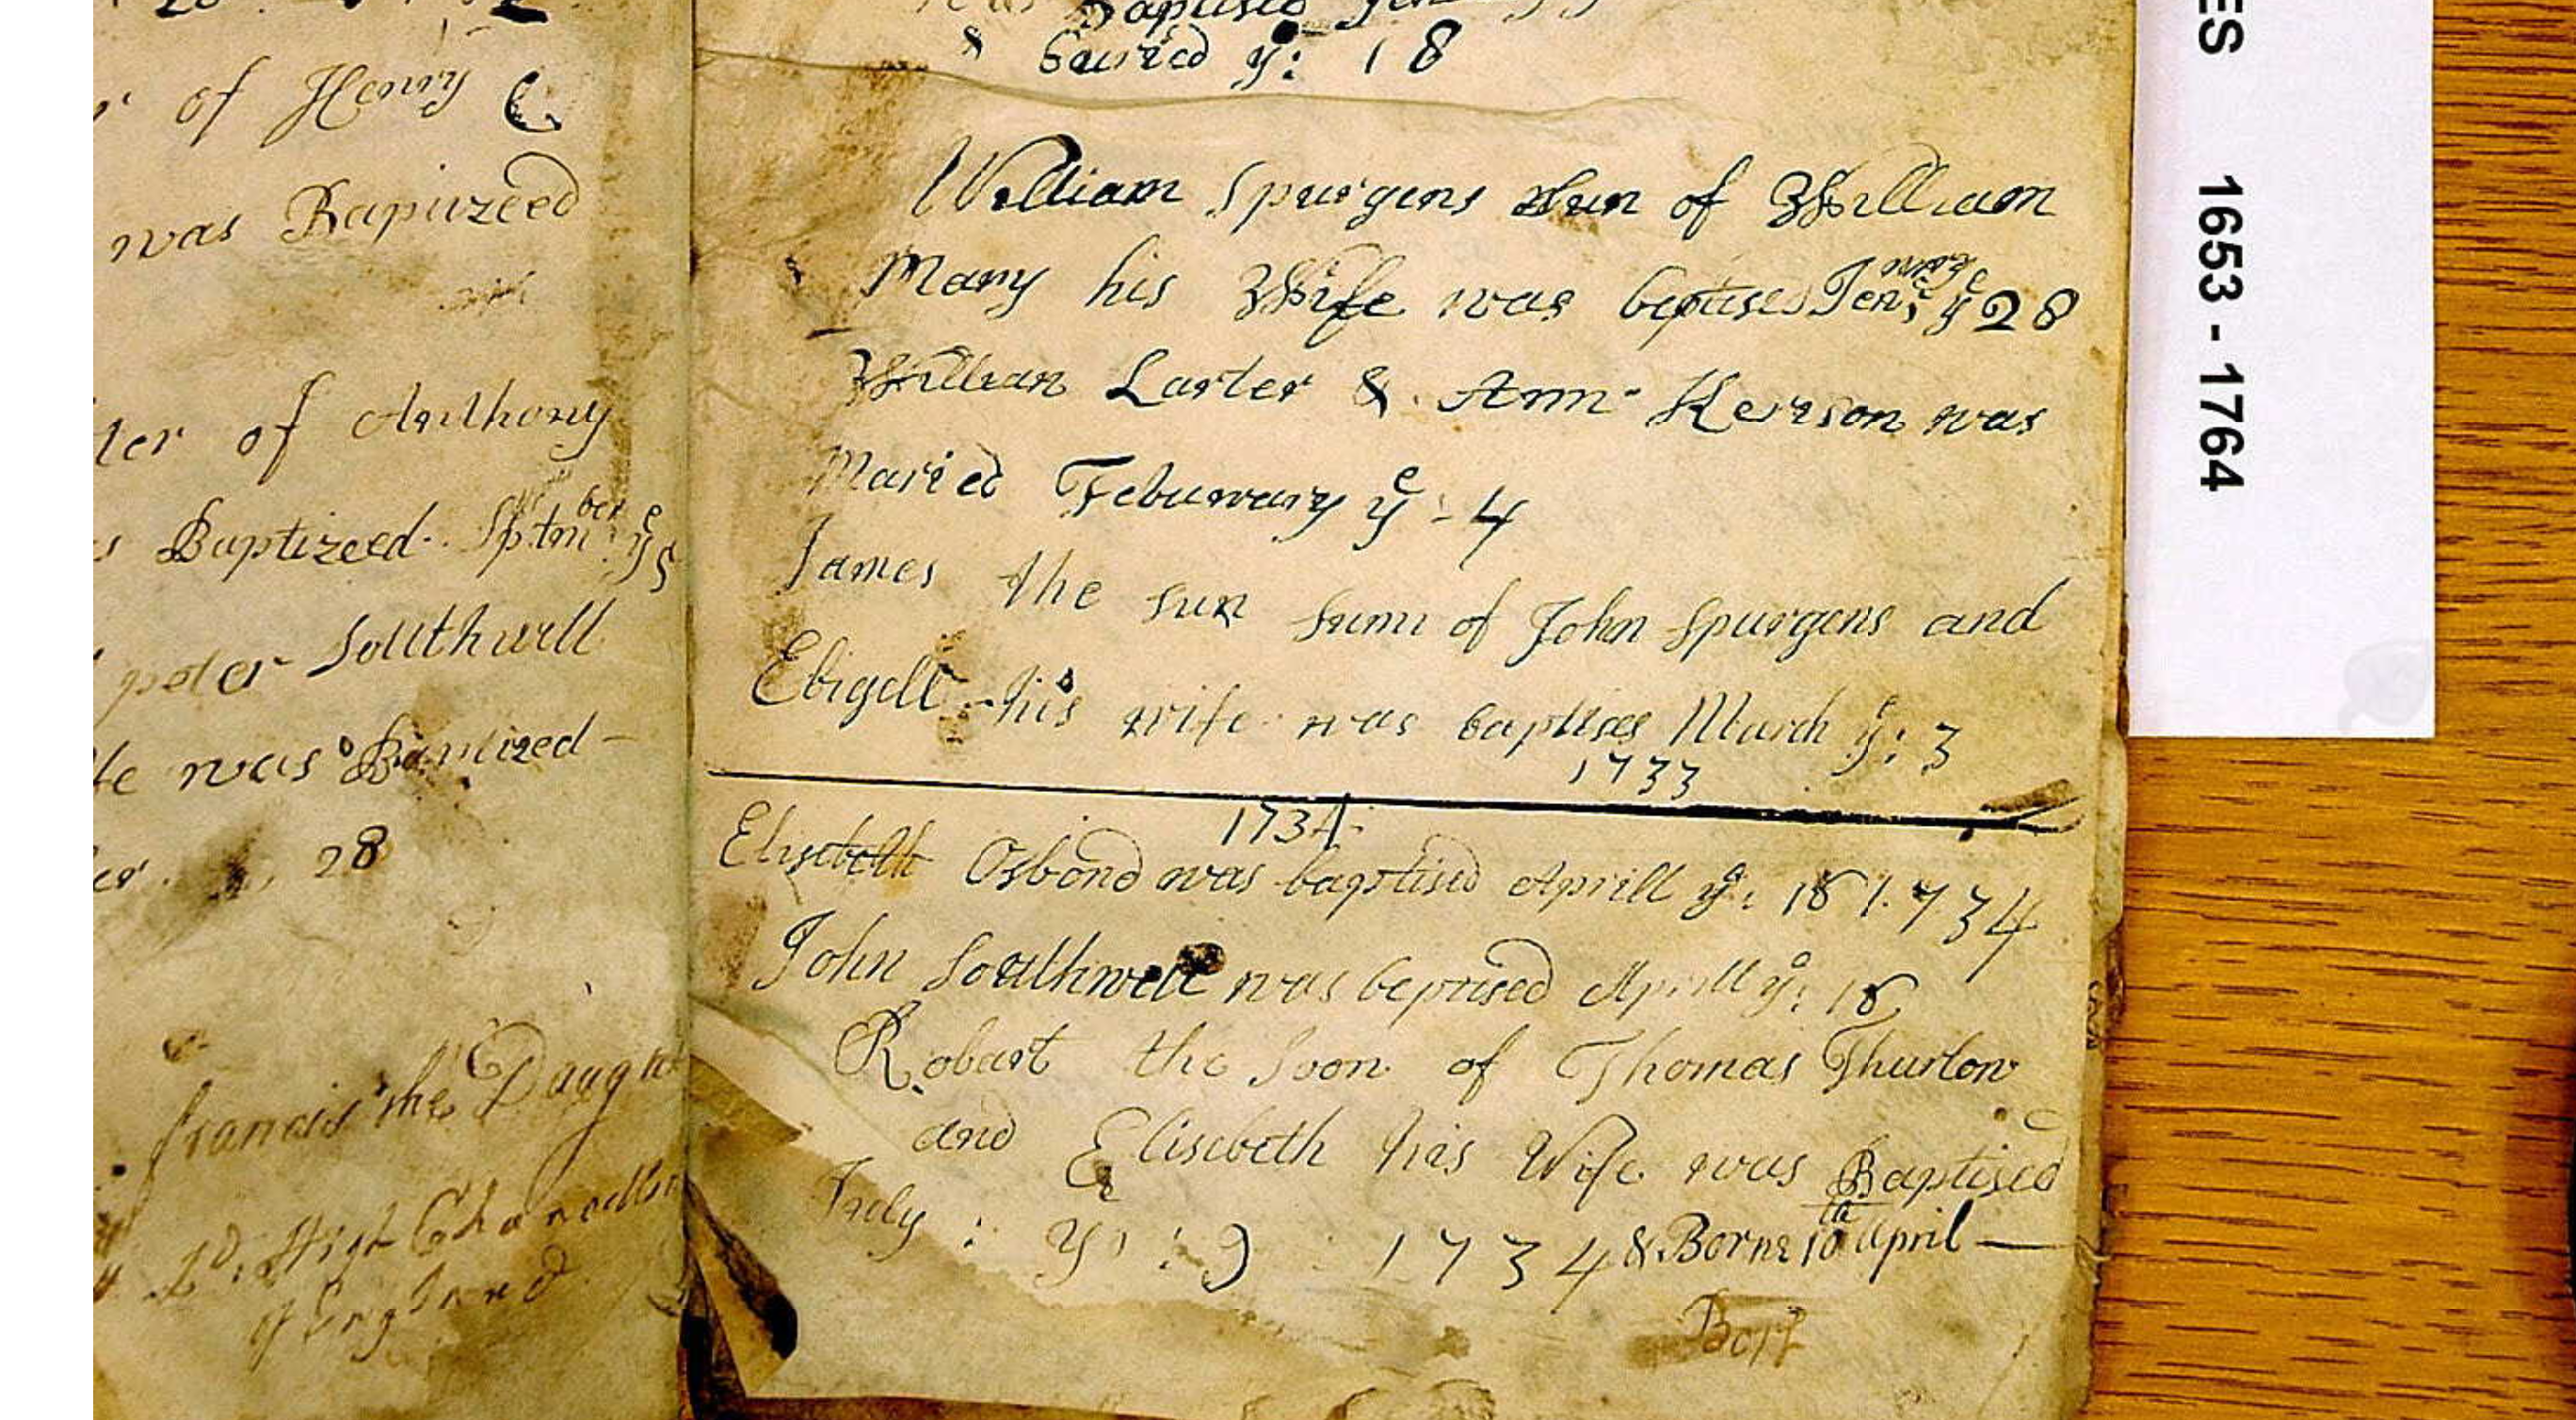 of Henry
was Bapuzeed
ter of Anthony
Baptizeed Sptmber ye 5
peter Southwell
was Bamtized
28
francis the Daught
Ld: High Chancellor
of England
Baptised
& buried ye: 18
William Spurgens sun of William
Mary his Wife was beptised Jenuary ye 28
William Larter & Ann Kerrson was
Maried Februwary ye 4
James the sun sunn of John Spurgens and
Ebigell his wife was baptises March ye: 3
1733
1734
Elisebeth Osbond was baptised Aprill ye: 18 1734
John Southwell was beptised Aprill ye: 18
Robart the Soon of Thomas Thurlow
and Elisebeth his Wife was Baptised
July : ye : 9 1734 & Borne 10th April
ES 1653 - 1764